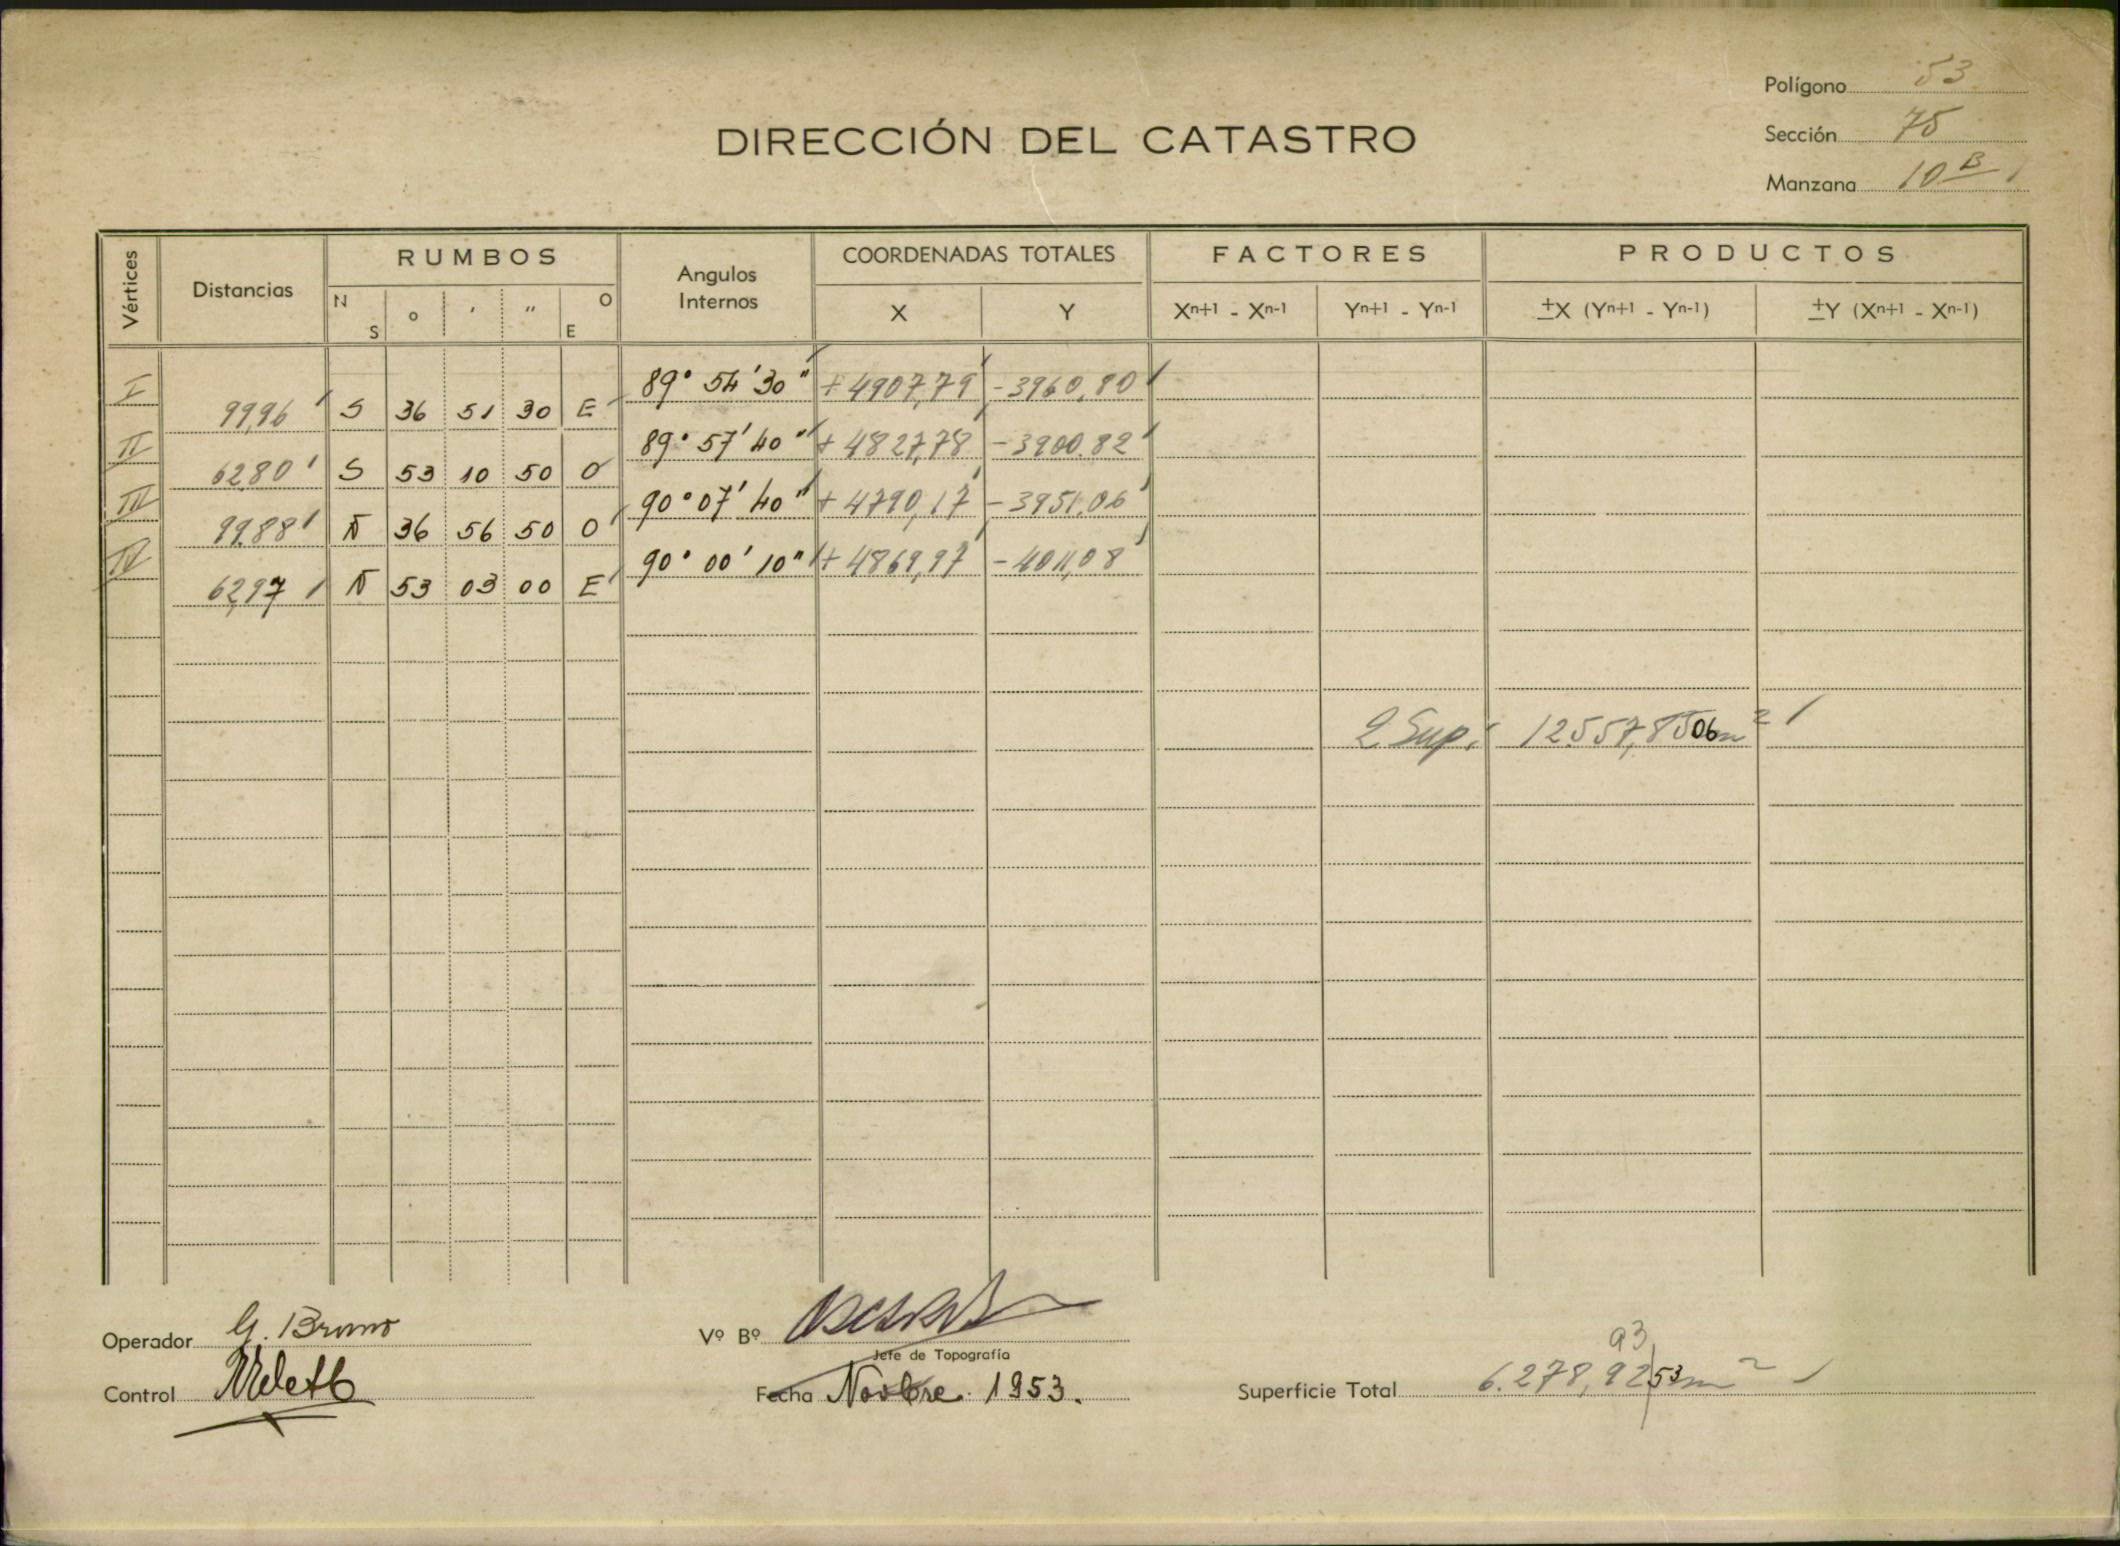 Polígono 53
Sección 75
Manzana 10 B
DIRECCIÓN DEL CATASTRO
Vértices Distancias RUMBOS Angulos Internos COORDENADAS TOTALES FACTORES PRODUCTOS
N S o ' '' O E X Y Xn+1 - Xn-1 Yn+1 - Yn-1 ±X (Yn+1 - Yn-1) ±Y (Xn+1 - Xn-1)
I 89° 54' 30" + 4907,79 - 3960,80
99,96 S 36 51 30 E
II 89° 57' 40" + 4827,78 - 3900.82
62,80 S 53 10 50 O
III 90° 07' 40" + 4790,17 - 3951.06
99,88 N 36 56 50 O
IV 90° 00' 10" + 4869,97 - 4011,08
62,97 N 53 03 00 E
2 Sup. 12.557,8506 m²
Operador G. Bruno
Vº Bº
Jefe de Topografía
93
Control
Fecha Novbre. 1953.
Superficie Total 6.278,9253 m²